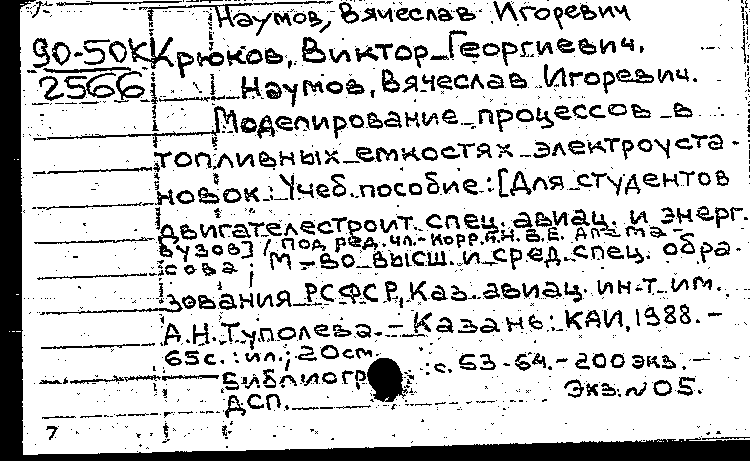 Наумов, Вячеслав Игоревич
90-50К Крюков, Виктор Георгиевич.
2566 Наумов, Вячеслав Игоревич.
Моделирование процессов в
топливных емкостях электроуста-
новок: Учеб. пособие: [Для студентов
двигателестроит. спец. авиац. и энерг.
вузов] / под ред. чл.-корр. А.Н. В.Е. Алема-
сова; М-во высш. и сред. спец. обра-
зования РСФСР, Каз. авиац. ин-т им.
А.Н. Туполева. - Казань: КАИ, 1988. -
65с.: ил.; 20см.
Библиогр : с. 63-64. - 200 экз. -
ДСП. Экз. № 05.
7